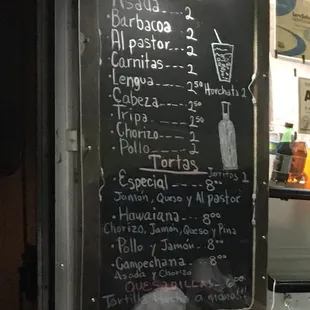 Asada---2
·Barbacoa 2
·Al pastor---2
·Carnitas---2
·Lengua---2.50
Horchata 2
·Cabeza----2.50
·Tripa----2.50
·Chorizo--2
·Pollo----2
Tortas
Jarritos 2
·Especial----8.00
Jamón, Queso y Al pastor
·Hawaiana---8.00
Chorizo, Jamón, Queso y Pina
·Pollo y Jamón--8.00
·Campechana--8.00
Asada y Chorizo
QUESADILLAS
Tortilla Hecha a mano!!